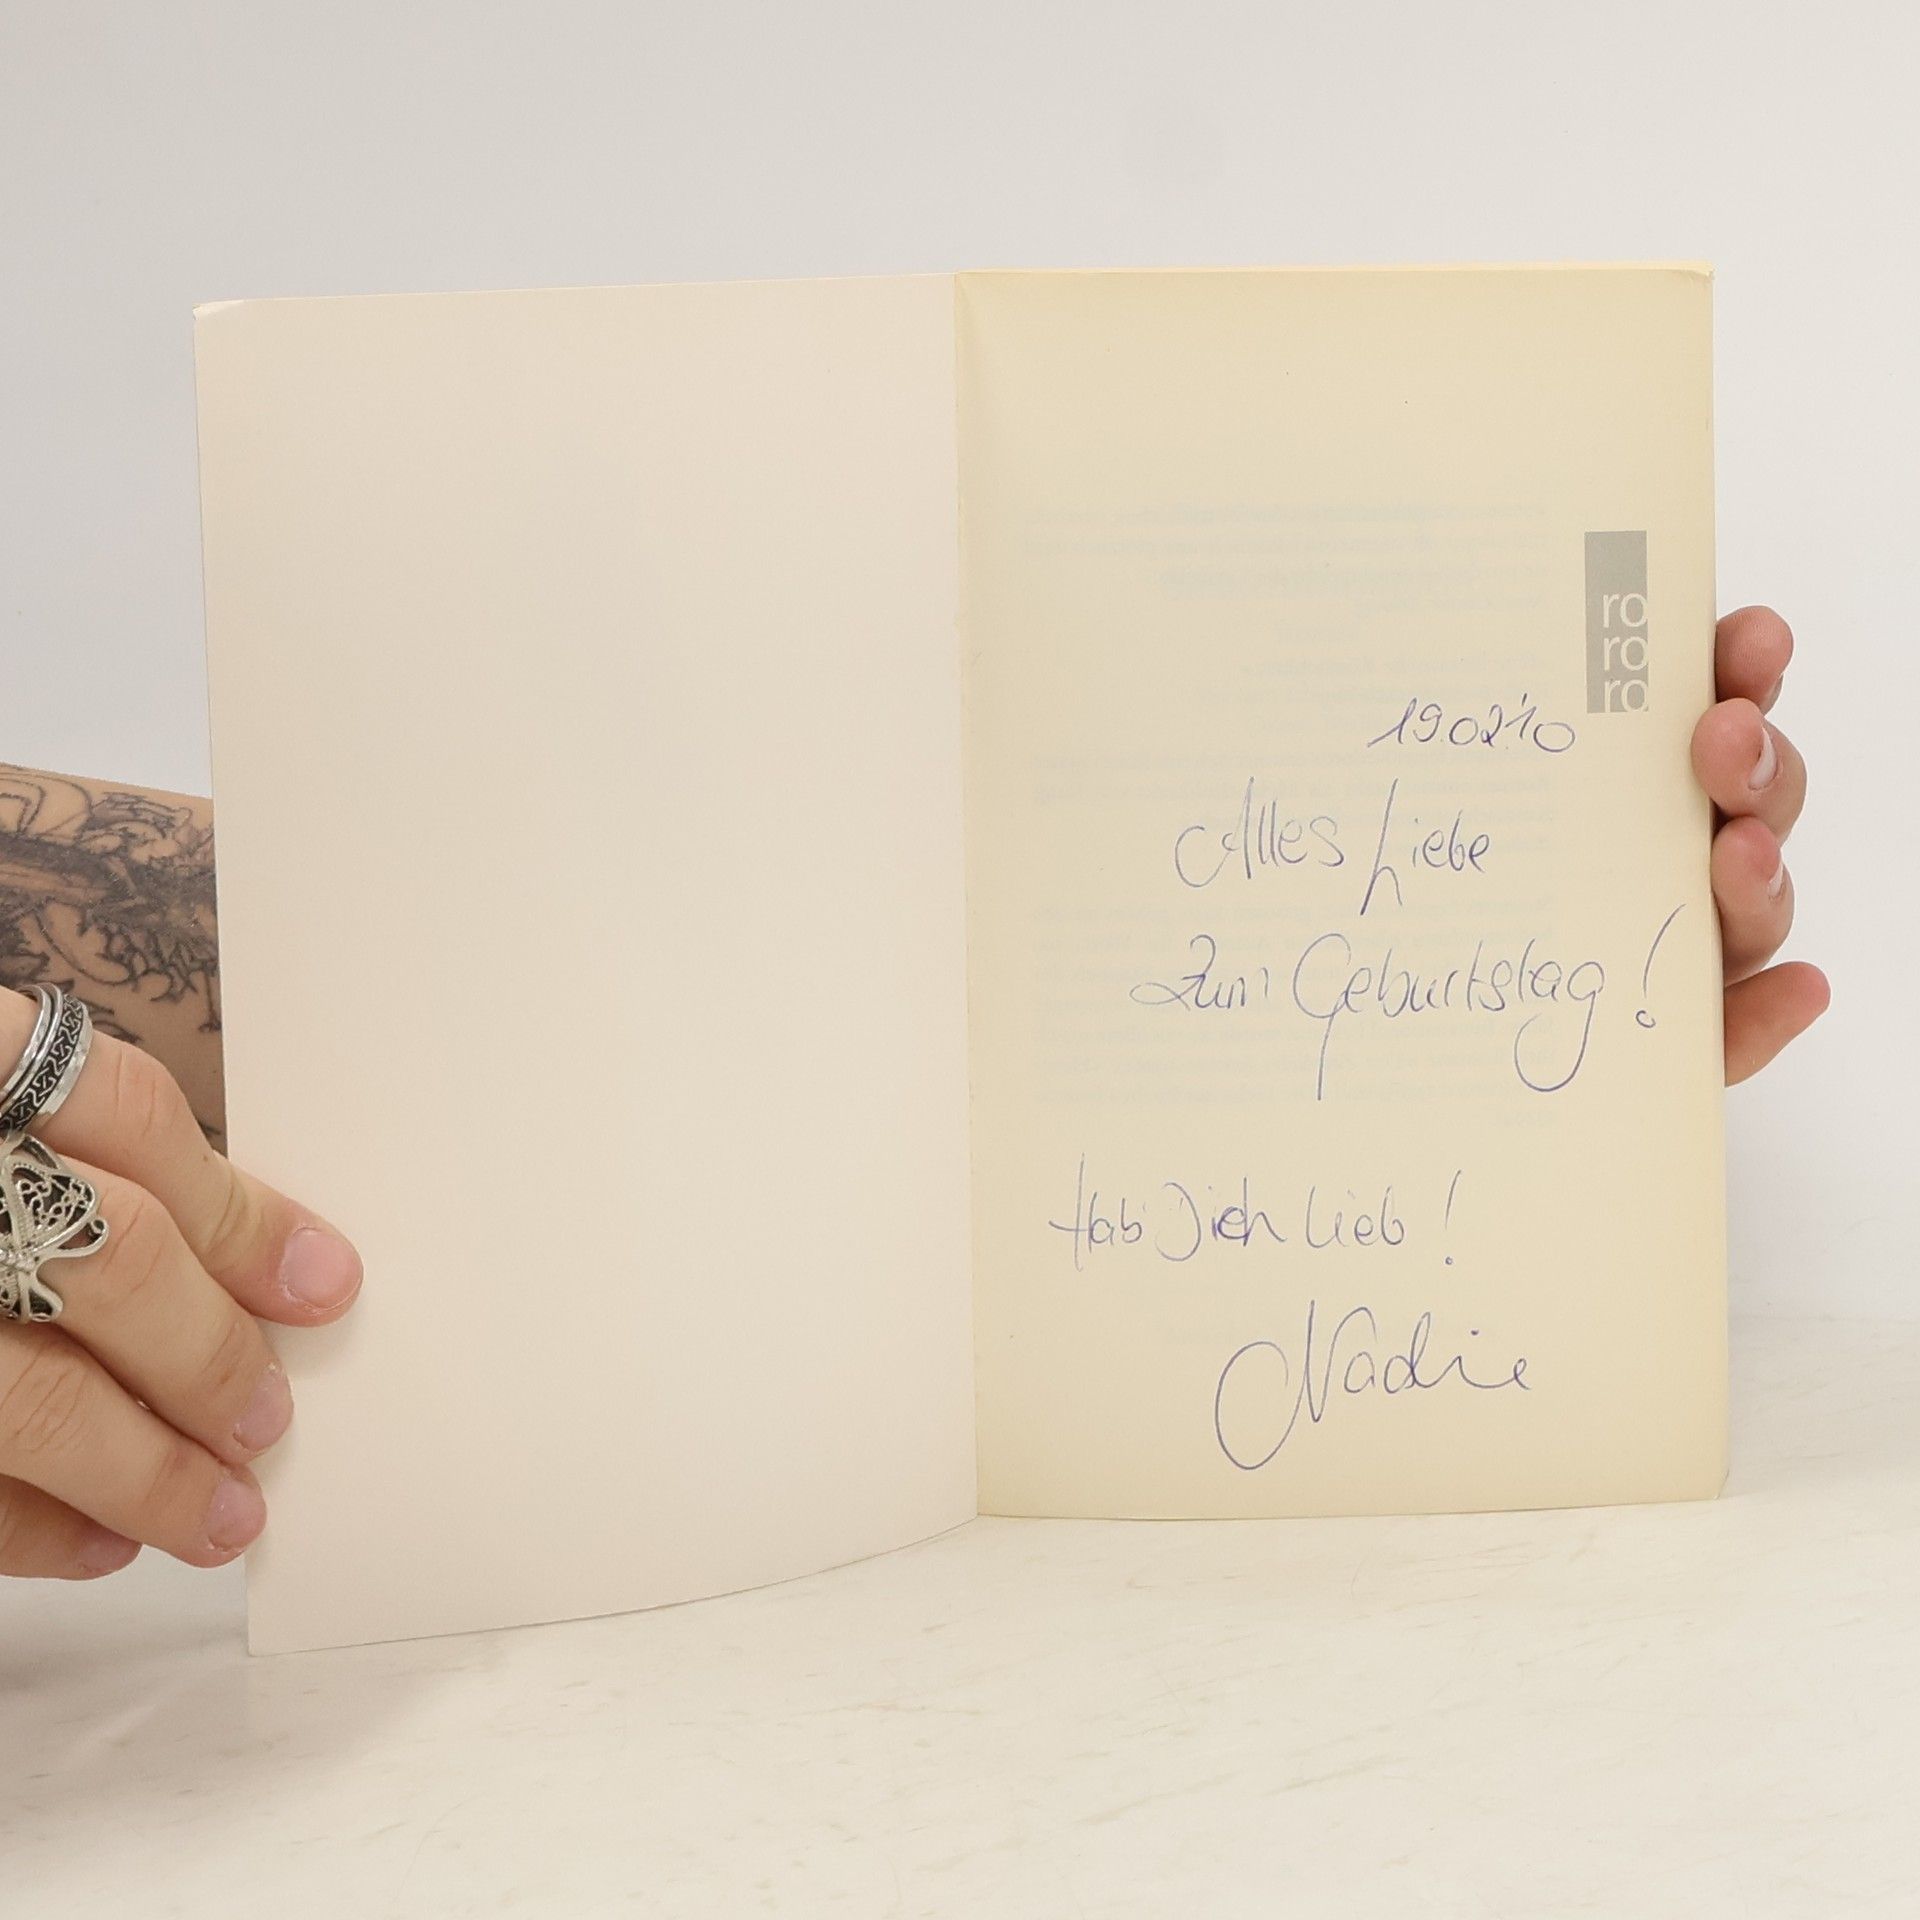 ro
ro
ro
19.02.'10
Alles Liebe
zum Geburtstag!
Hab' Dich lieb!
Nadine